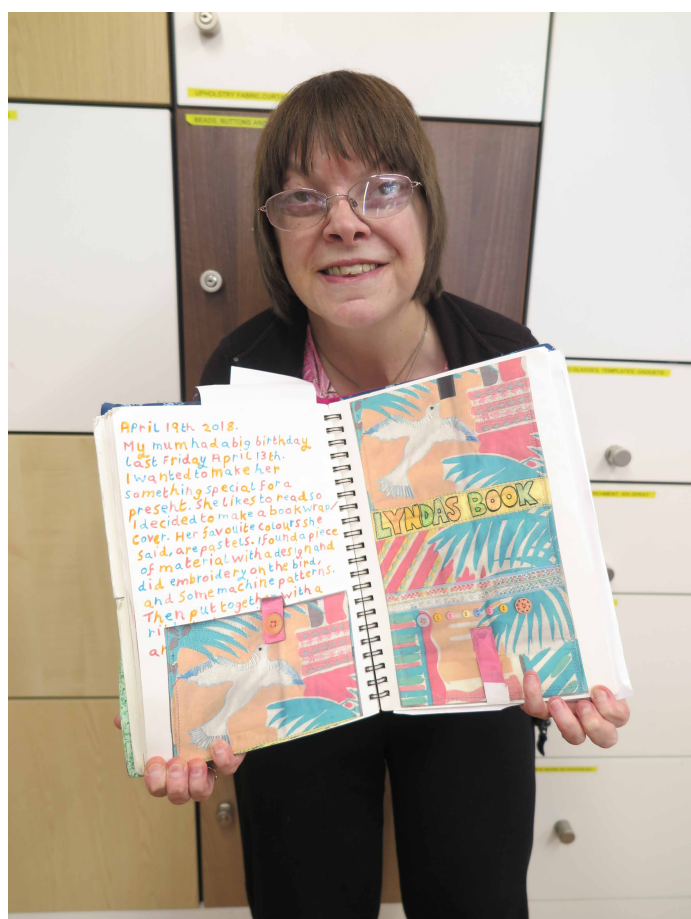 UPHOLSTRY FABRIC
BEADS, BUTTONS AND
April 19th 2018.
My mum had a big birthday
last Friday April 13th.
I wanted to make her
something special for a
present. She likes to read so
I decided to make a book wrap/
cover. Her favouite colours she
said, are pastels. I found a piece
of material with a design and
did embroidery on the bird,
and some machine patterns.
Then put together with a
LYNDAS BOOK